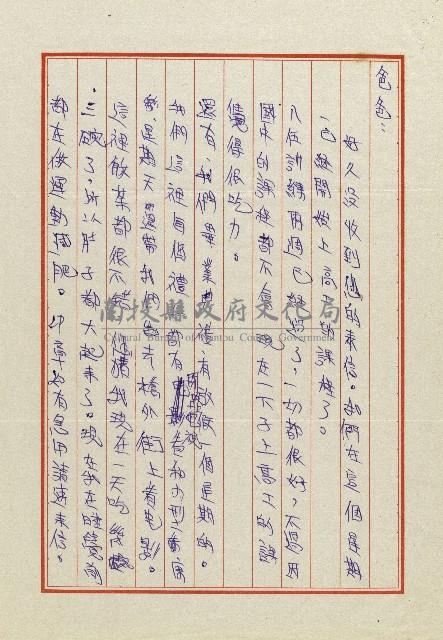 爸爸：
好久沒收到您的來信。我們在這個星期
已經開始上高一的課程了。
入伍訓練兩週已經過了，一切都很好，不過因
國中的課程都不
在一下子上高一的課
覺得很吃力。
還有，我們畢業
有放假一個星期的。
我們這裡每個禮
都有
看和
星期天還帶我們出去橋外街上看電影。
這裡飯菜都很不錯
我現在一天吃幾碗
三碗了，所以肚子都大起來了。現在我在睡覺前
都在做運動減肥。印章若有急用請速來信。
南投縣政府文化局
Cultural Bureau of Nantou County Government